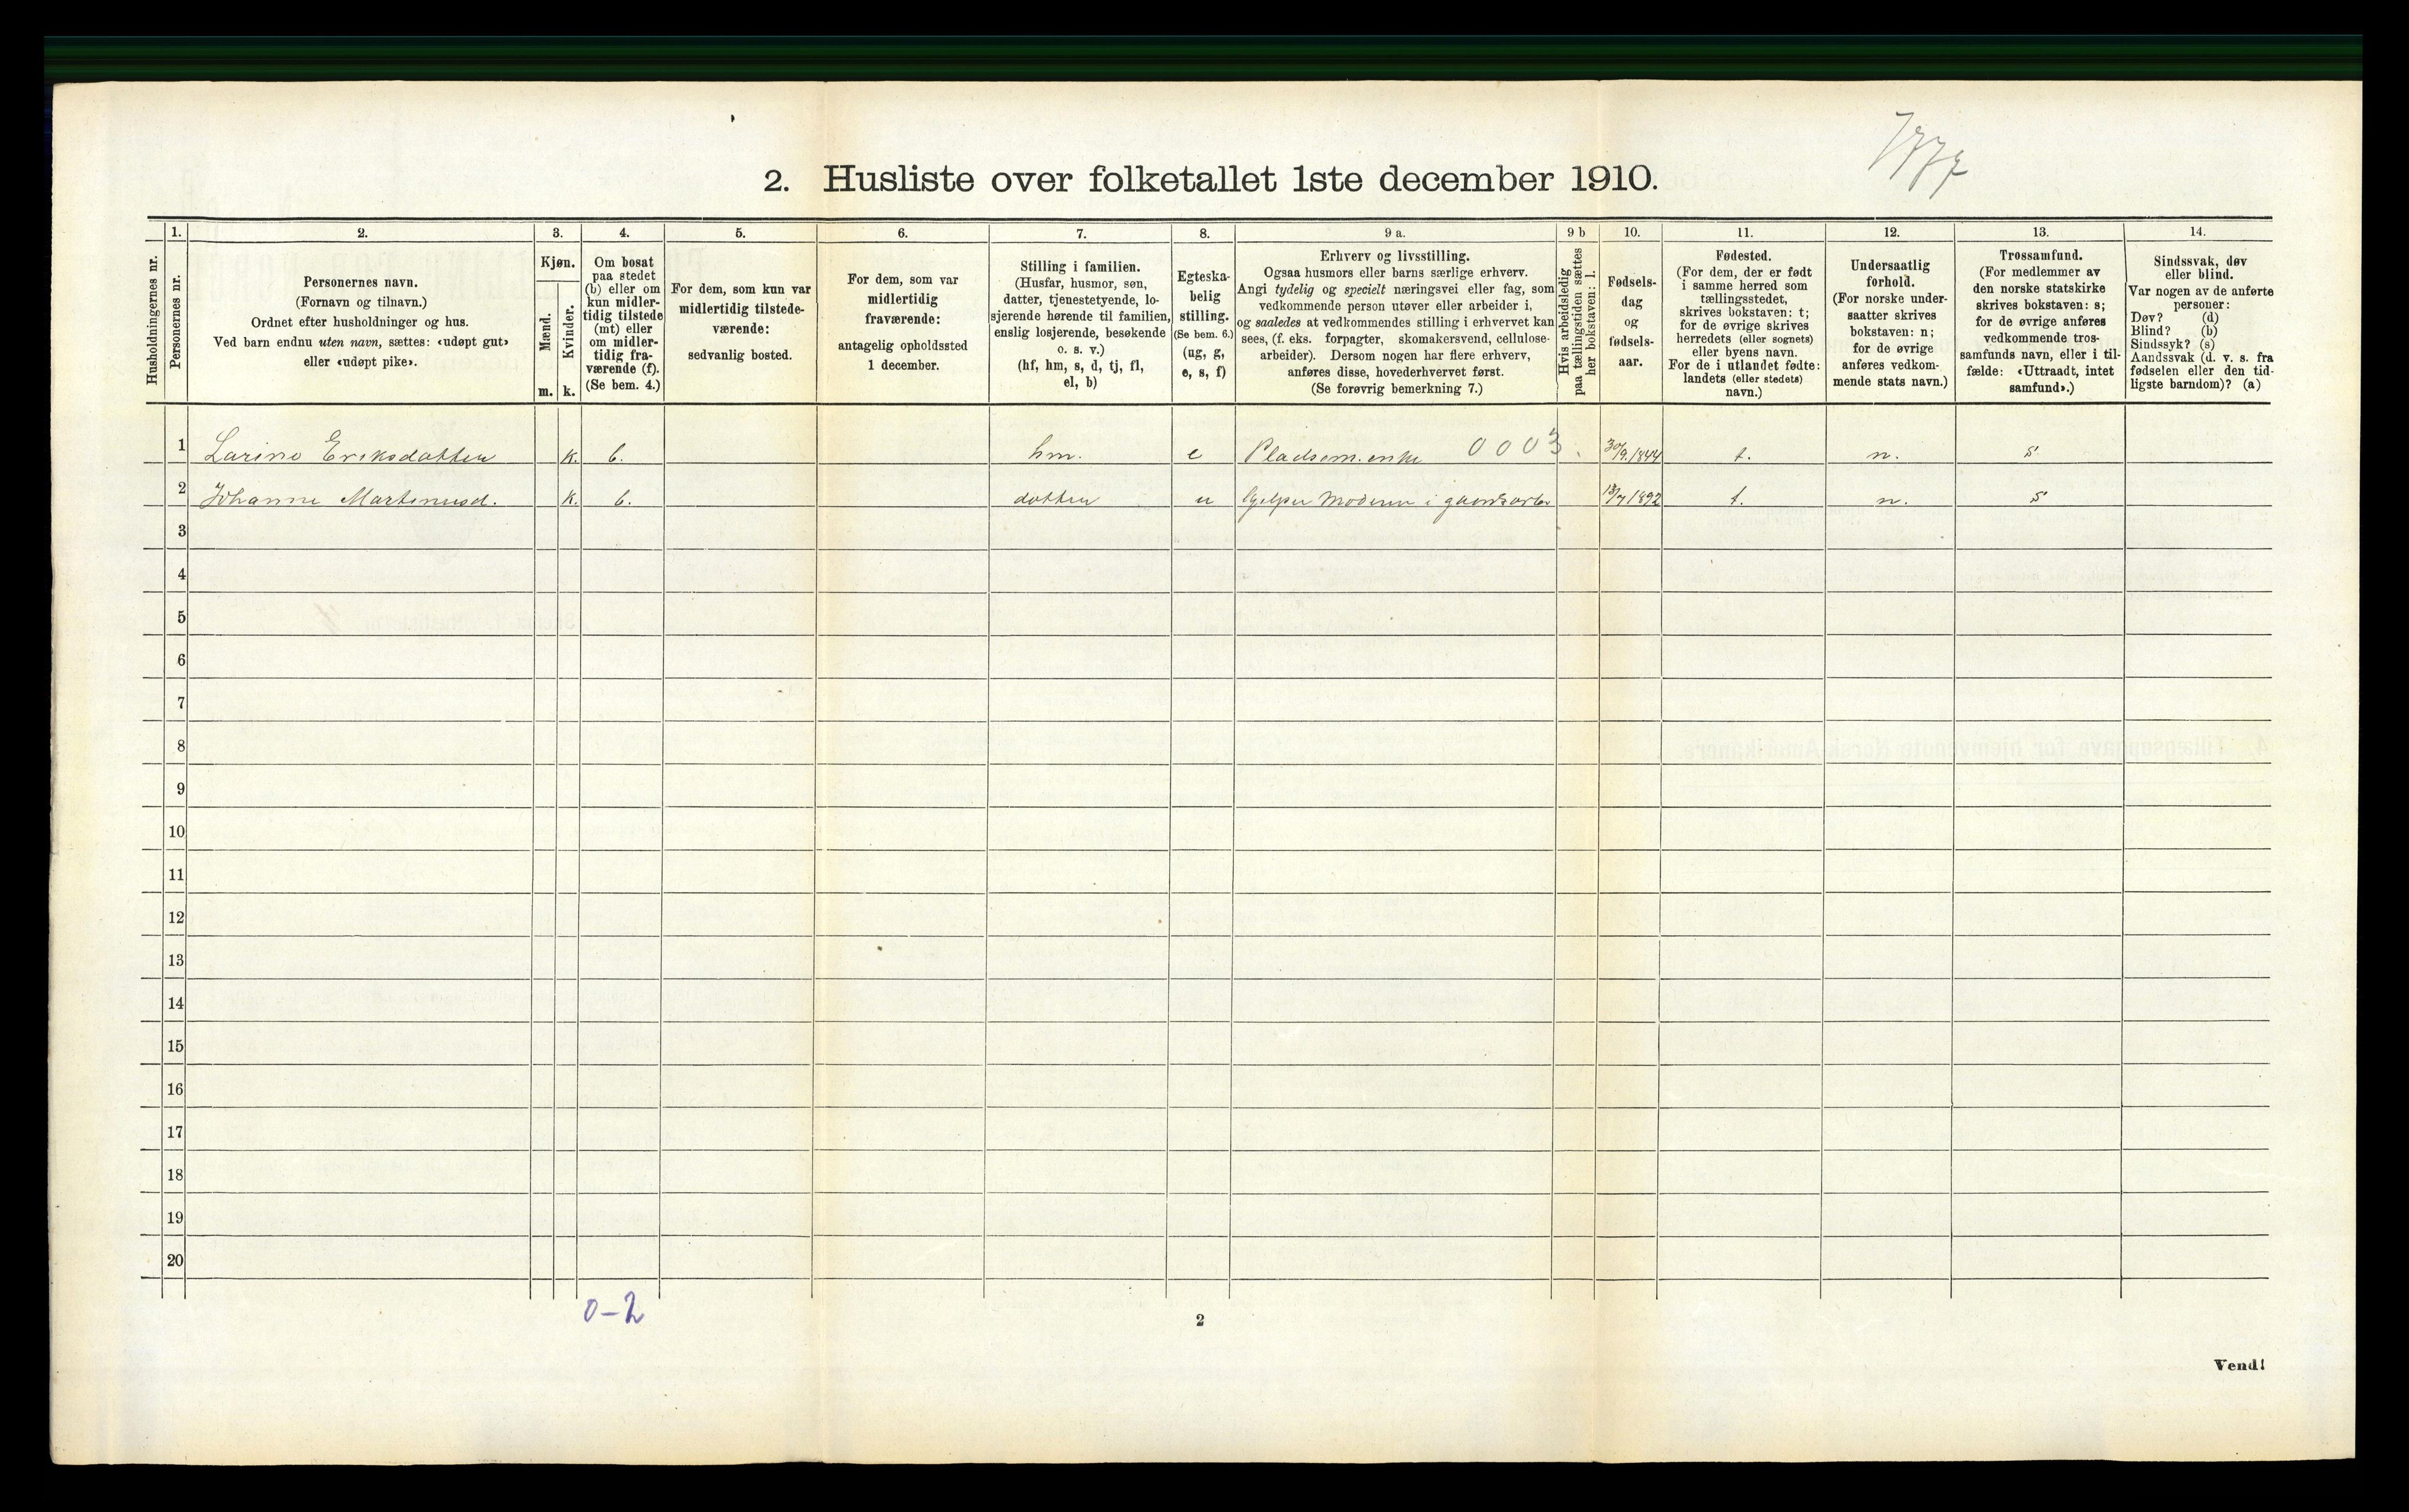 2. Husliste over folketallet 1ste december 1910.
Husholdningernes nr.
1.
Personernes nr.
2.
Personernes navn.
(Fornavn og tilnavn.)
Ordnet efter husholdninger og hus.
Ved barn endnu uten navn, sættes: «udøpt gut»
eller «udøpt pike».
3.
Kjøn.
Mænd.
m.
Kvinder.
k.
4.
Om bosat
paa stedet
(b) eller om
kun midler-
tidig tilstede
(mt) eller
om midler-
tidig fra-
værende (f).
(Se bem. 4.)
5.
For dem, som kun var
midlertidig tilstede-
værende:
sedvanlig bosted.
6.
For dem, som var
midlertidig
fraværende:
antagelig opholdssted
1 december.
7.
Stilling i familien.
(Husfar, husmor, søn,
datter, tjenestetyende, lo-
sjerende hørende til familien,
enslig losjerende, besøkende
o. s. v.)
(hf, hm, s, d, tj, fl,
el, b)
8.
Egteska-
belig
stilling.
(Se bem. 6.)
(ug, g,
e, s, f)
9 a.
Erhverv og livsstilling.
Ogsaa husmors eller barns særlige erhverv.
Angi tydelig og specielt næringsvei eller fag, som
vedkommende person utøver eller arbeider i,
og saaledes at vedkommendes stilling i erhvervet kan
sees, (f. eks. forpagter, skomakersvend, cellulose-
arbeider). Dersom nogen har flere erhverv,
anføres disse, hovederhvervet først.
(Se forøvrig bemerkning 7.)
9 b
Hvis arbeidsledig
paa tællingstiden sættes
her bokstaven: l.
10.
Fødsels-
dag
og
fødsels-
aar.
11.
Fødested.
(For dem, der er født
i samme herred som
tællingsstedet,
skrives bokstaven: t;
for de øvrige skrives
herredets (eller sognets)
eller byens navn.
For de i utlandet fødte:
landets (eller stedets)
navn.)
12.
Undersaatlig
forhold.
(For norske under-
saatter skrives
bokstaven: n;
for de øvrige
anføres vedkom-
mende stats navn.)
13.
Trossamfund.
(For medlemmer av
den norske statskirke
skrives bokstaven: s;
for de øvrige anføres
vedkommende tros-
samfunds navn, eller i til-
fælde: «Uttraadt, intet
samfund».)
14.
Sindssvak, døv
eller blind.
Var nogen av de anførte
personer:
Døv? (d)
Blind? (b)
Sindssyk? (s)
Aandssvak (d. v. s. fra
fødselen eller den tid-
ligste barndom)? (a)
1 Larine Eriksdatter k. b. hm. e Pladsem. enke 0003. 30/9.1844 t. n. s
2 Johanne Martinusd. k. b. datter u hjelper Moderen i 13/7 1892 t. n. s
3
4
5
6
7
8
9
10
11
12
13
14
15
16
17
18
19
20
0-2
2
Vend!